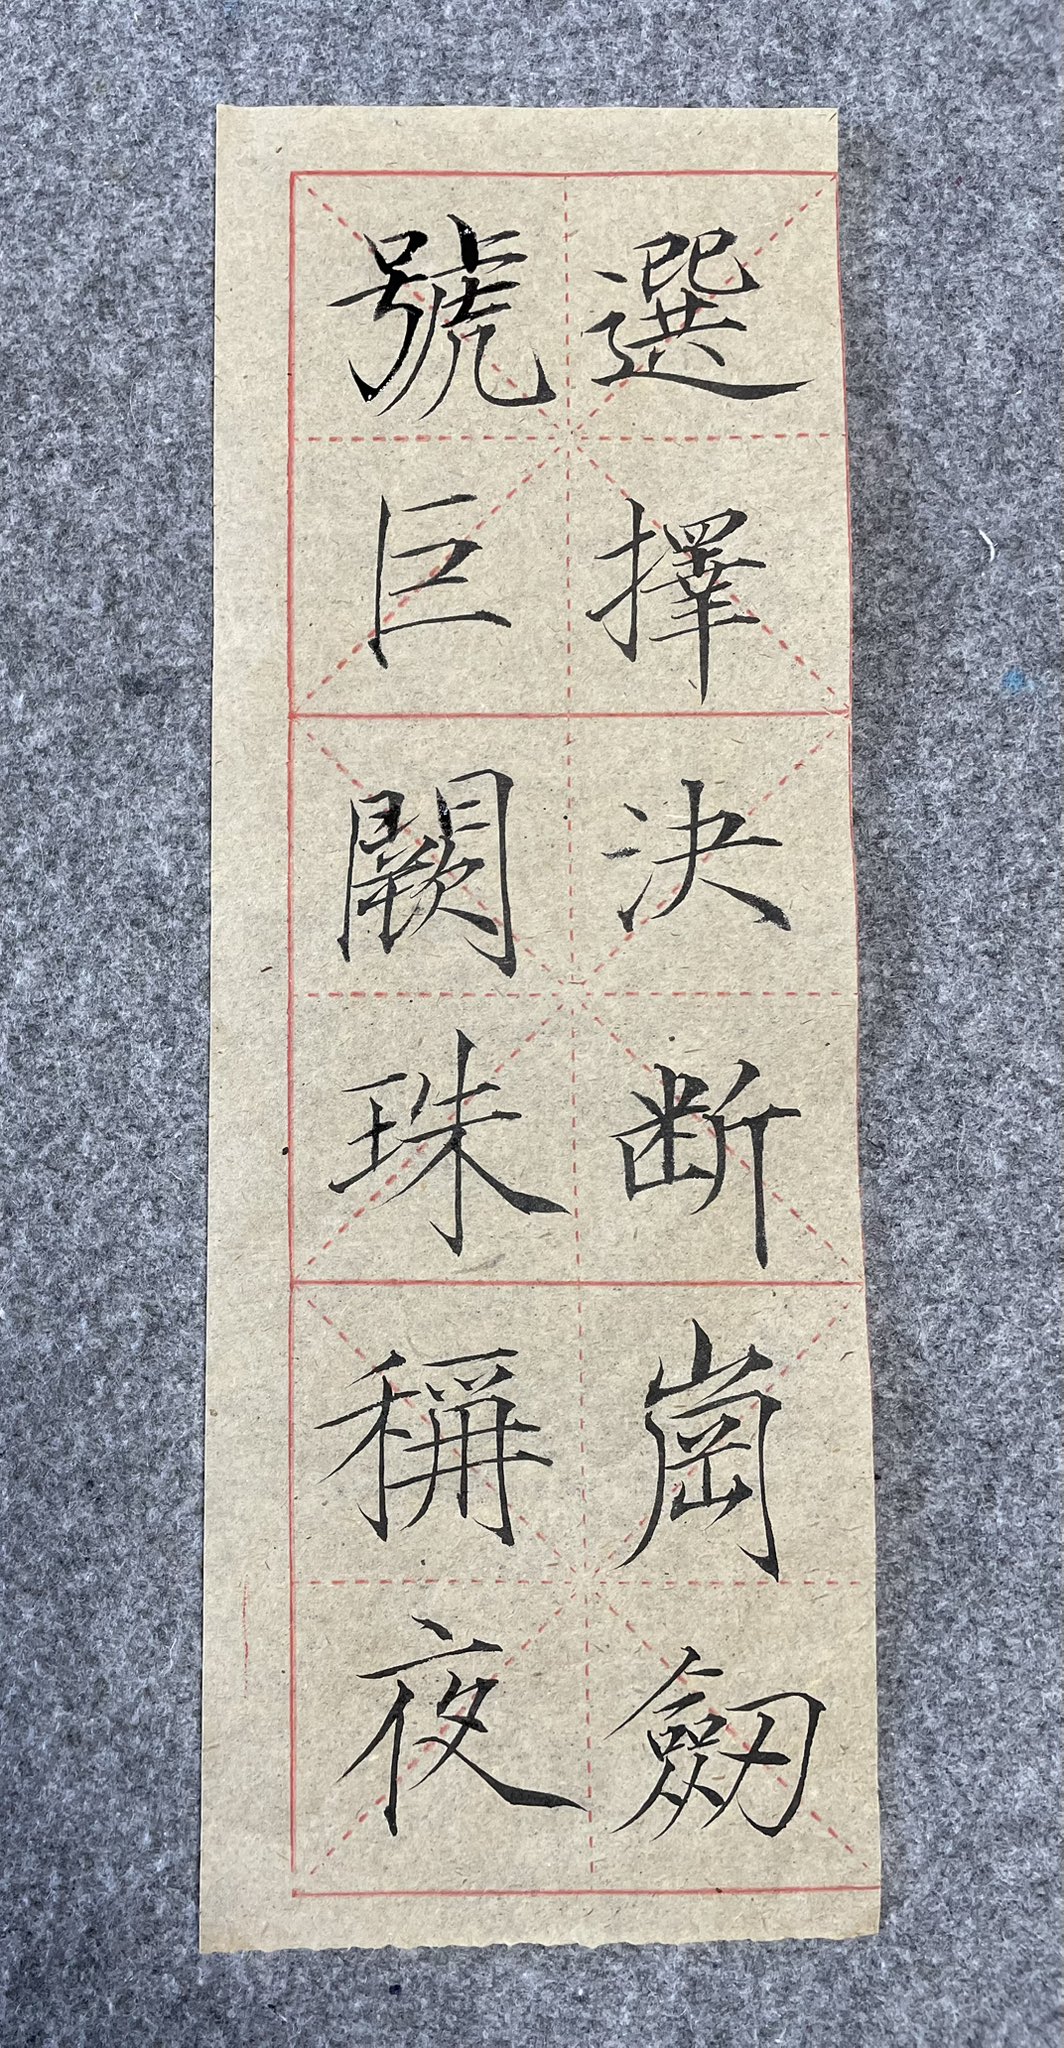 選擇決断崗劒
號巨闕珠稱夜